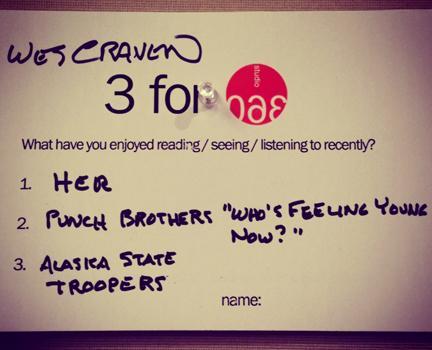 WES CRAVEN
3 for
studio
360
What have you enjoyed reading / seeing / listening to recently?
1. HER
2. PUNCH BROTHERS "WHO'S FEELING YOUNG
NOW?"
3. ALASKA STATE
TROOPERS
name: